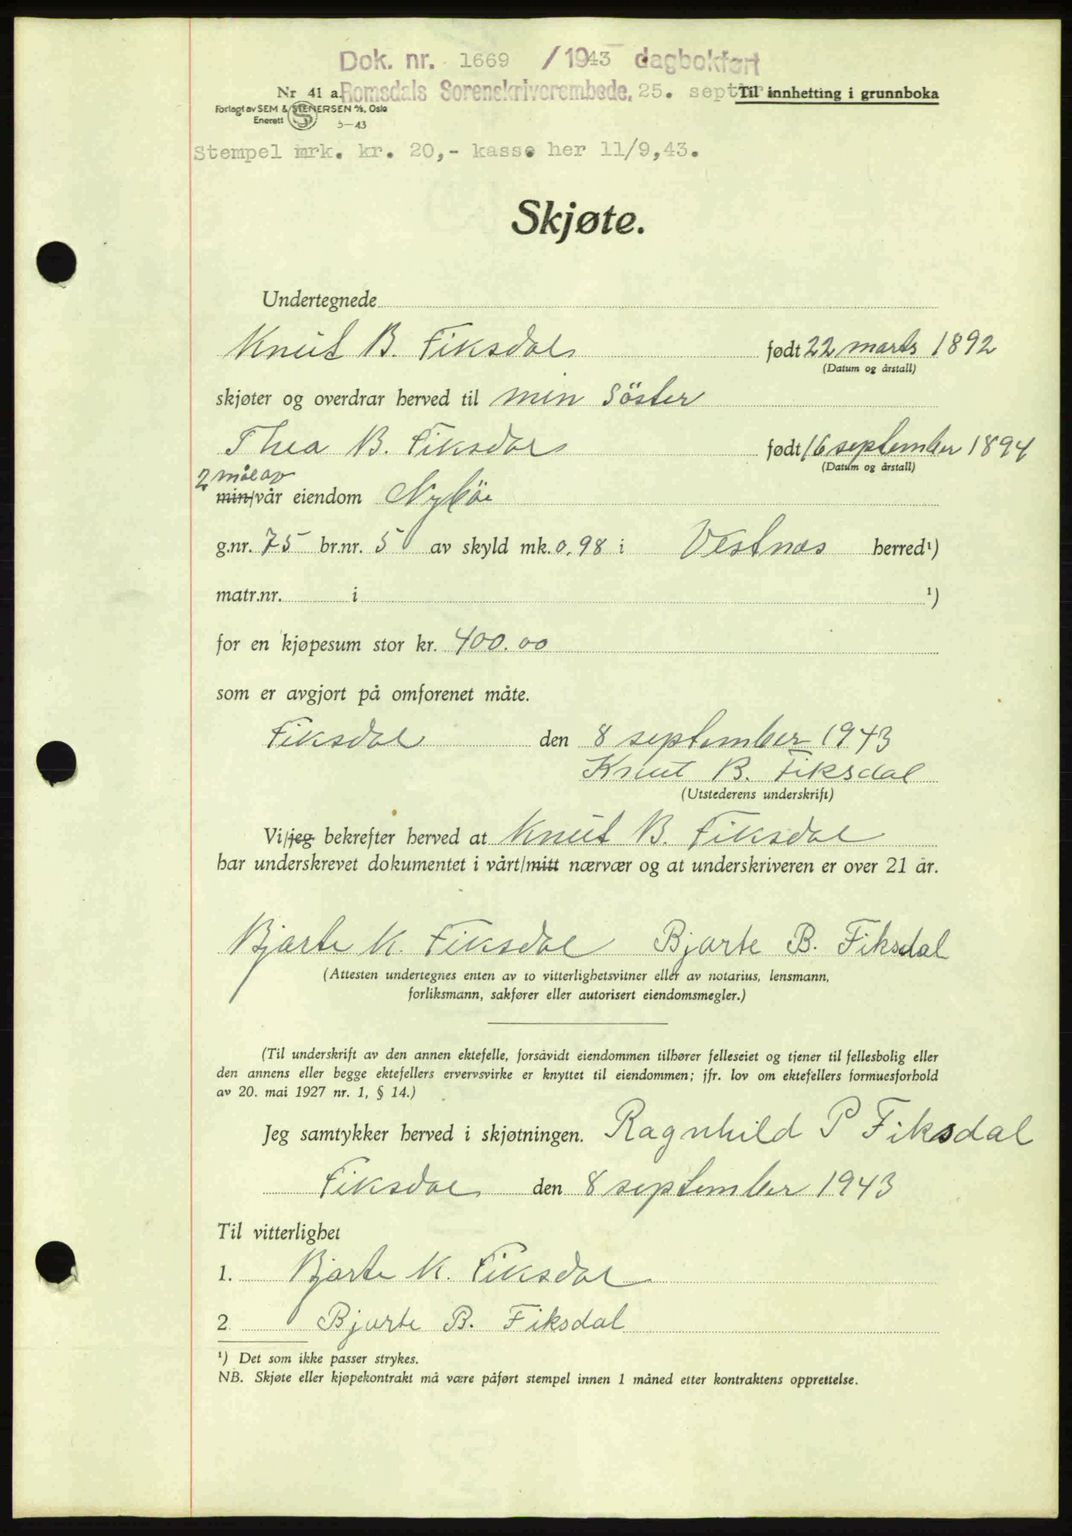 Dok. nr. 1669 /1943 dagbokført
Nr 41 a. Romsdals Sorenskriverembede. 25. sept. Til innhefting i grunnboka
Forlagt av SEM & STENERSEN A/S, Oslo
Enerett 5-43
Stempel mrk. kr. 20,- kasse her 11/9,43.
Skjøte.
Undertegnede
Knut B. Fiksdal født 22 marts 1892
(Datum og årstall)
skjøter og overdrar herved til min söster
Thea B. Fiksdal født 16 september 1894
(Datum og årstall)
2 mål av
min/vår eiendom Nybö
g.nr. 75 br.nr. 5 av skyld mk. 0.98 i Vestnes herred¹)
matr.nr. i ¹)
for en kjøpesum stor kr. 400.00
som er avgjort på omforenet måte.
Fiksdal den 8 september 1943
Knut B. Fiksdal
(Utstederens underskrift)
Vi/jeg bekrefter herved at Knut B. Fiksdal
har underskrevet dokumentet i vårt/mitt nærvær og at underskriveren er over 21 år.
Bjarte K. Fiksdal Bjarte B. Fiksdal
(Attesten undertegnes enten av to vitterlighetsvitner eller av notarius, lensmann,
forliksmann, sakfører eller autorisert eiendomsmegler.)
(Til underskrift av den annen ektefelle, forsåvidt eiendommen tilhører felleseiet og tjener til fellesbolig eller
den annens eller begge ektefellers ervervsvirke er knyttet til eiendommen; jfr. lov om ektefellers formuesforhold
av 20. mai 1927 nr. 1, § 14.)
Jeg samtykker herved i skjøtningen. Ragnhild P Fiksdal
Fiksdal den 8 september 1943
Til vitterlighet
1. Bjarte K. Fiksdal
2 Bjarte B. Fiksdal
¹) Det som ikke passer strykes.
NB. Skjøte eller kjøpekontrakt må være påført stempel innen 1 måned etter kontraktens opprettelse.